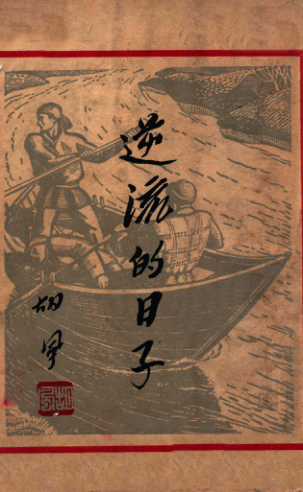 逆流的日子
胡风